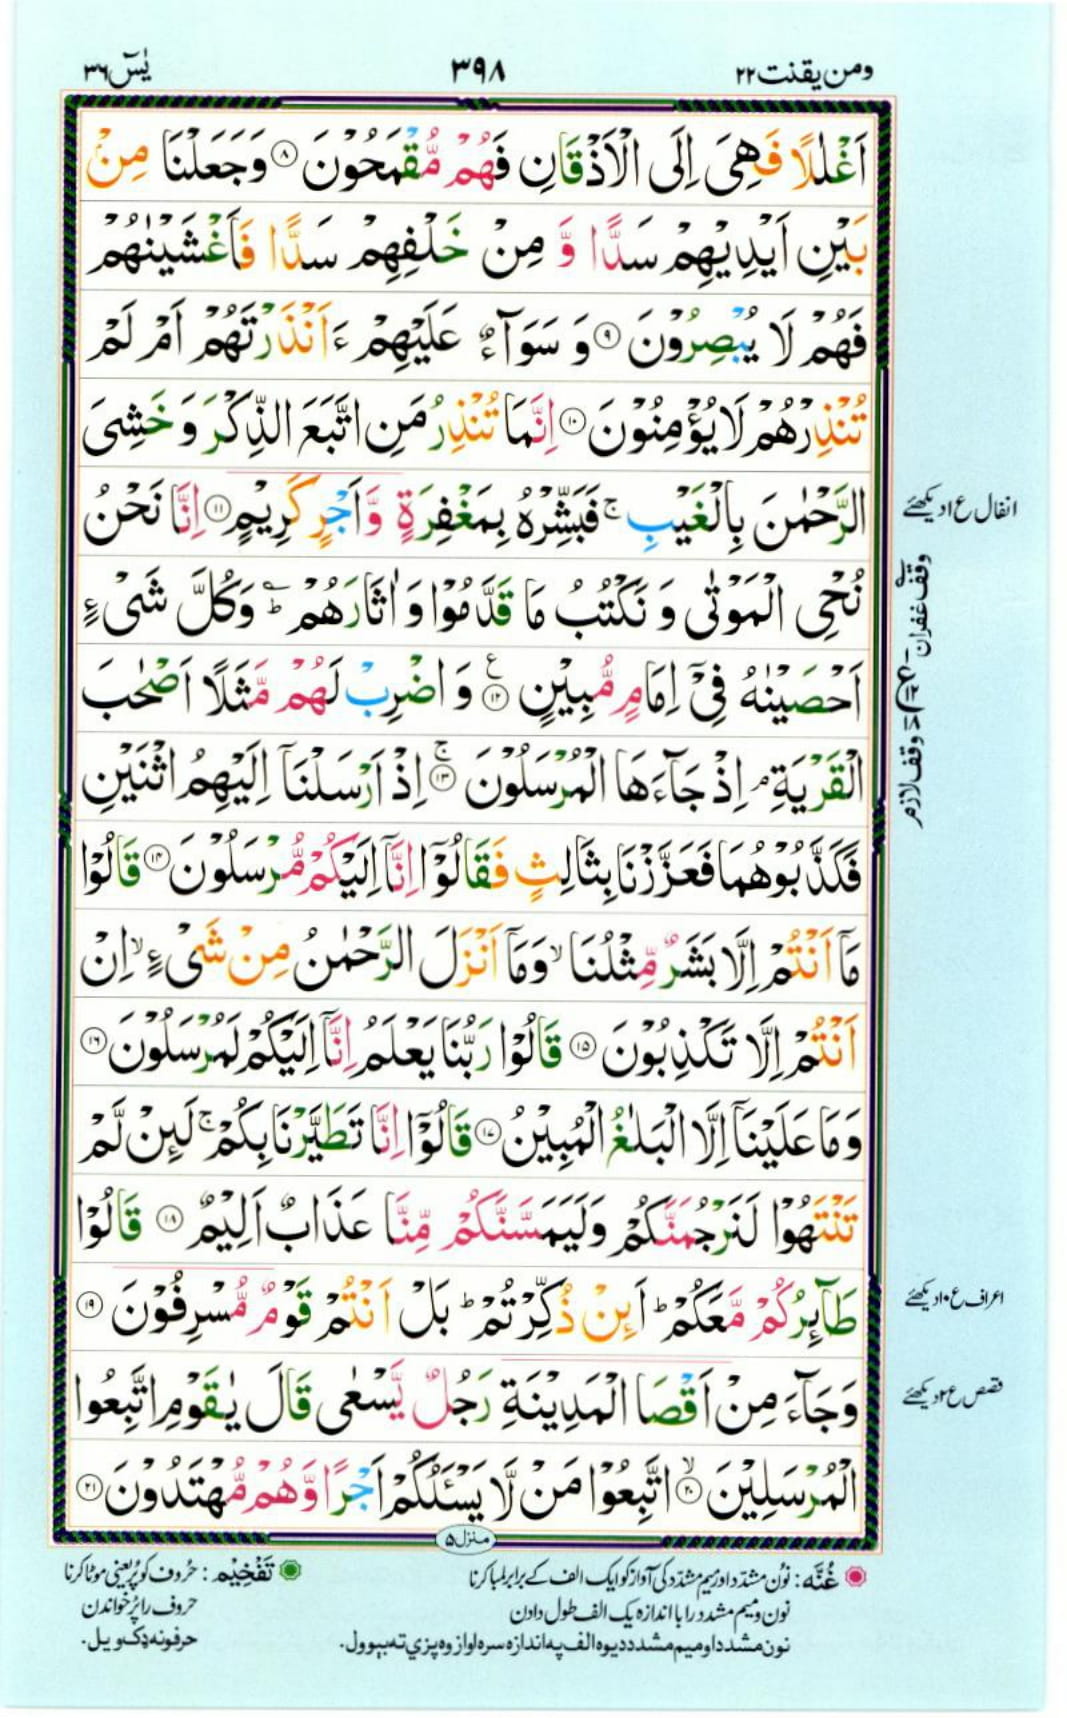 ومن يقنت ٢٢
٣٩٨
يٰسٓ ٣٦
اَغْلٰلًا فَهِىَ اِلَى الْاَذْقَانِ فَهُمْ مُّقْمَحُوْنَ ۝٨ وَجَعَلْنَا مِنْۢ
بَيْنِ اَيْدِيْهِمْ سَدًّا وَّ مِنْ خَلْفِهِمْ سَدًّا فَاَغْشَيْنٰهُمْ
فَهُمْ لَا يُبْصِرُوْنَ ۝٩ وَ سَوَآءٌ عَلَيْهِمْ ءَاَنْذَرْتَهُمْ اَمْ لَمْ
تُنْذِرْهُمْ لَا يُؤْمِنُوْنَ ۝١٠ اِنَّمَا تُنْذِرُ مَنِ اتَّبَعَ الذِّكْرَ وَ خَشِىَ
الرَّحْمٰنَ بِالْغَيْبِ ۚ فَبَشِّرْهُ بِمَغْفِرَةٍ وَّاَجْرٍ كَرِيْمٍ ۝١١ اِنَّا نَحْنُ
انفال ع ١ دیکھئے
نُحْىِ الْمَوْتٰى وَ نَكْتُبُ مَا قَدَّمُوْا وَ اٰثَارَهُمْ ؕ وَكُلَّ شَىْءٍ
وقف غفران
اَحْصَيْنٰهُ فِىْٓ اِمَامٍ مُّبِيْنٍ ۝١٢ ع وَ اضْرِبْ لَهُمْ مَّثَلًا اَصْحٰبَ
وقف لازم
الْقَرْيَةِ ۘ اِذْ جَآءَهَا الْمُرْسَلُوْنَ ۝١٣ ۚ اِذْ اَرْسَلْنَآ اِلَيْهِمُ اثْنَيْنِ
فَكَذَّبُوْهُمَا فَعَزَّزْنَا بِثَالِثٍ فَقَالُوْٓا اِنَّآ اِلَيْكُمْ مُّرْسَلُوْنَ ۝١٤ قَالُوْا
مَآ اَنْتُمْ اِلَّا بَشَرٌ مِّثْلُنَا ۙ وَمَآ اَنْزَلَ الرَّحْمٰنُ مِنْ شَىْءٍ ۙ اِنْ
اَنْتُمْ اِلَّا تَكْذِبُوْنَ ۝١٥ قَالُوْا رَبُّنَا يَعْلَمُ اِنَّآ اِلَيْكُمْ لَمُرْسَلُوْنَ ۝١٦
وَمَا عَلَيْنَآ اِلَّا الْبَلٰغُ الْمُبِيْنُ ۝١٧ قَالُوْٓا اِنَّا تَطَيَّرْنَا بِكُمْ ۚ لَئِنْ لَّمْ
تَنْتَهُوْا لَنَرْجُمَنَّكُمْ وَلَيَمَسَّنَّكُمْ مِّنَّا عَذَابٌ اَلِيْمٌ ۝١٨ قَالُوْا
طَآئِرُكُمْ مَّعَكُمْ ؕ اَئِنْ ذُكِّرْتُمْ ؕ بَلْ اَنْتُمْ قَوْمٌ مُّسْرِفُوْنَ ۝١٩
اعراف ع ١٠ دیکھئے
وَجَآءَ مِنْ اَقْصَا الْمَدِيْنَةِ رَجُلٌ يَّسْعٰى قَالَ يٰقَوْمِ اتَّبِعُوا
قصص ع ٢ دیکھئے
الْمُرْسَلِيْنَ ۝٢٠ ۙ اتَّبِعُوْا مَنْ لَّا يَسْـَٔلُكُمْ اَجْرًا وَّهُمْ مُّهْتَدُوْنَ ۝٢١
منزل ۵
غُنَّه : نوُن مشدّد اور میم مشدّد کی آواز کو ایک الف کے برابر لمبا کرنا
نون و میم مشدد را با اندازه یک الف طول دادن
نون مشدد او میم مشدد دیوه الف په اندازه سره اواز وه پزي ته بېوول.
تَفْخِيْم : حرُوف کو پُر یعنی موٹا کرنا
حروف را پُر خواندن
حرفونه ډک ویل.